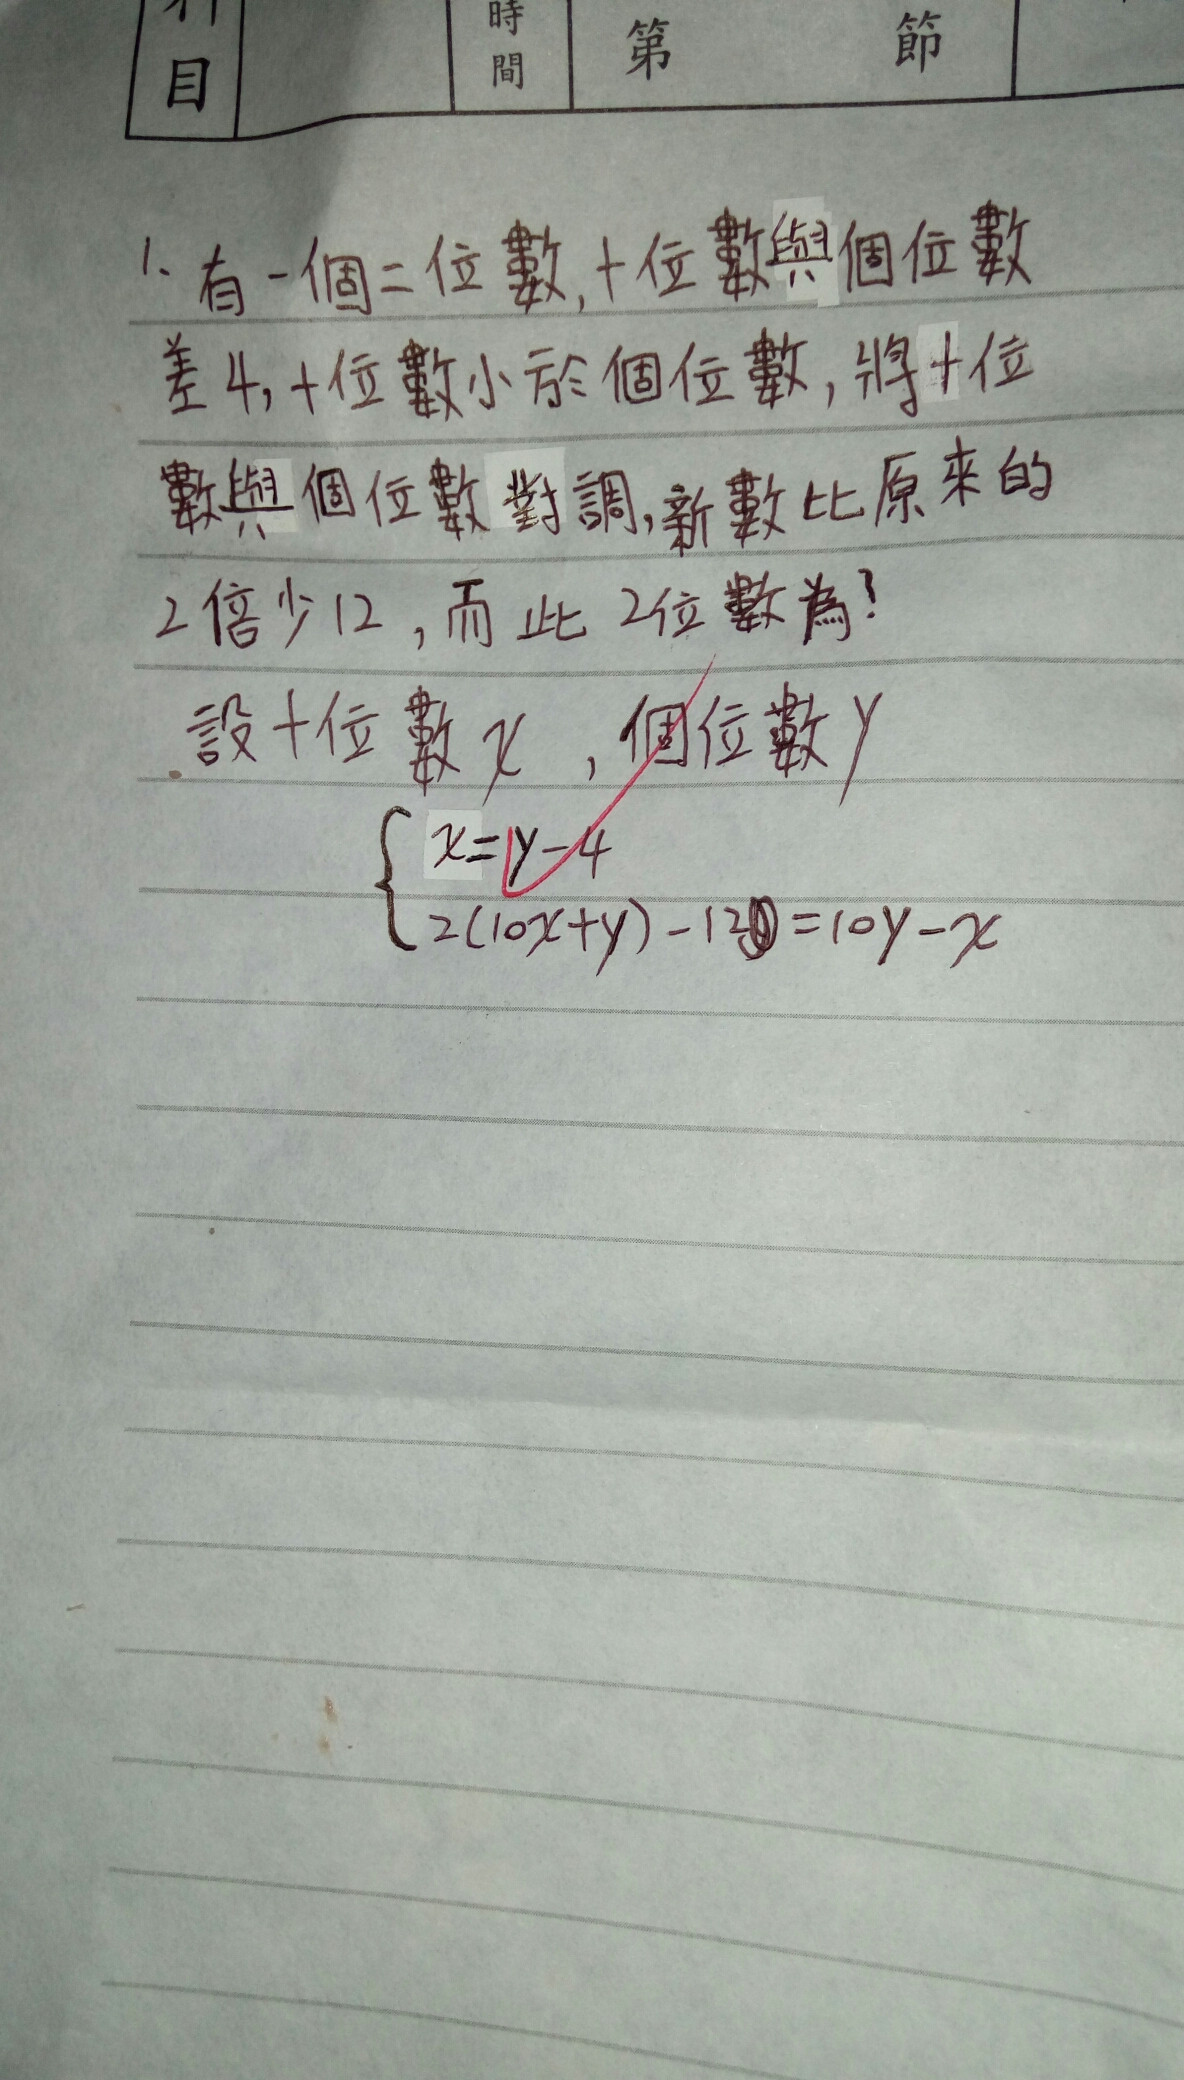 目 時間 第 節
1. 有一個二位數,十位數與個位數
差4,十位數小於個位數,將十位
數與個位數對調,新數比原來的
2倍少12,而此2位數為?
設十位數x,個位數y
x=y-4
2(10x+y)-12=10y-x